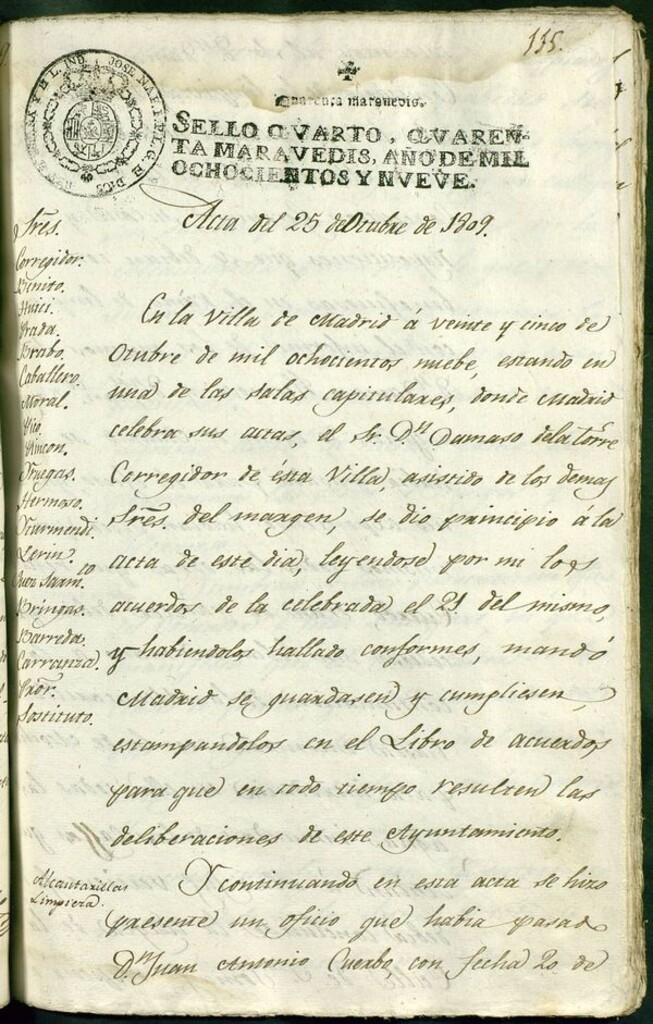 135.
Quarenta maravedis.
SELLO QVARTO, QVAREN-
TA MARAVEDIS, AÑO DE MIL
OCHOCIENTOS Y NVEVE.
Acta del 25 de Otubre de 1809.
Sres.
Corregidor.
Benito.
Huici.
Prada.
Brabo.
Caballero.
Moral.
Pico.
Rincon.
Hermoso.
Yturmendi.
Lerin.
Bringas.
Barreda.
Carranza.
Pror.
Sostituto.
En la Villa de Madrid á veinte y cinco de
Otubre de mil ochocientos nuebe, estando en
una de las salas capitulares, donde Madrid
celebra sus actas, el Sr. Dn. Damaso dela Torre
Corregidor de ésta Villa, asistido de los demas
Sres. del margen, se dio principio á la
acta de este dia, leyendose por mi los
acuerdos de la celebrada el 21 del mismo,
y habiendolos hallado conformes, mandó
Madrid se guardasen y cumpliesen,
estampandolos en el Libro de acuerdos
para que en todo tiempo resulten las
deliberaciones de este Ayuntamiento.
Alcantarillas
Limpieza.
Y continuando en esta acta se hizo
presente un oficio que habia pasado
Dn. Juan Antonio Cuerbo con fecha 20 de